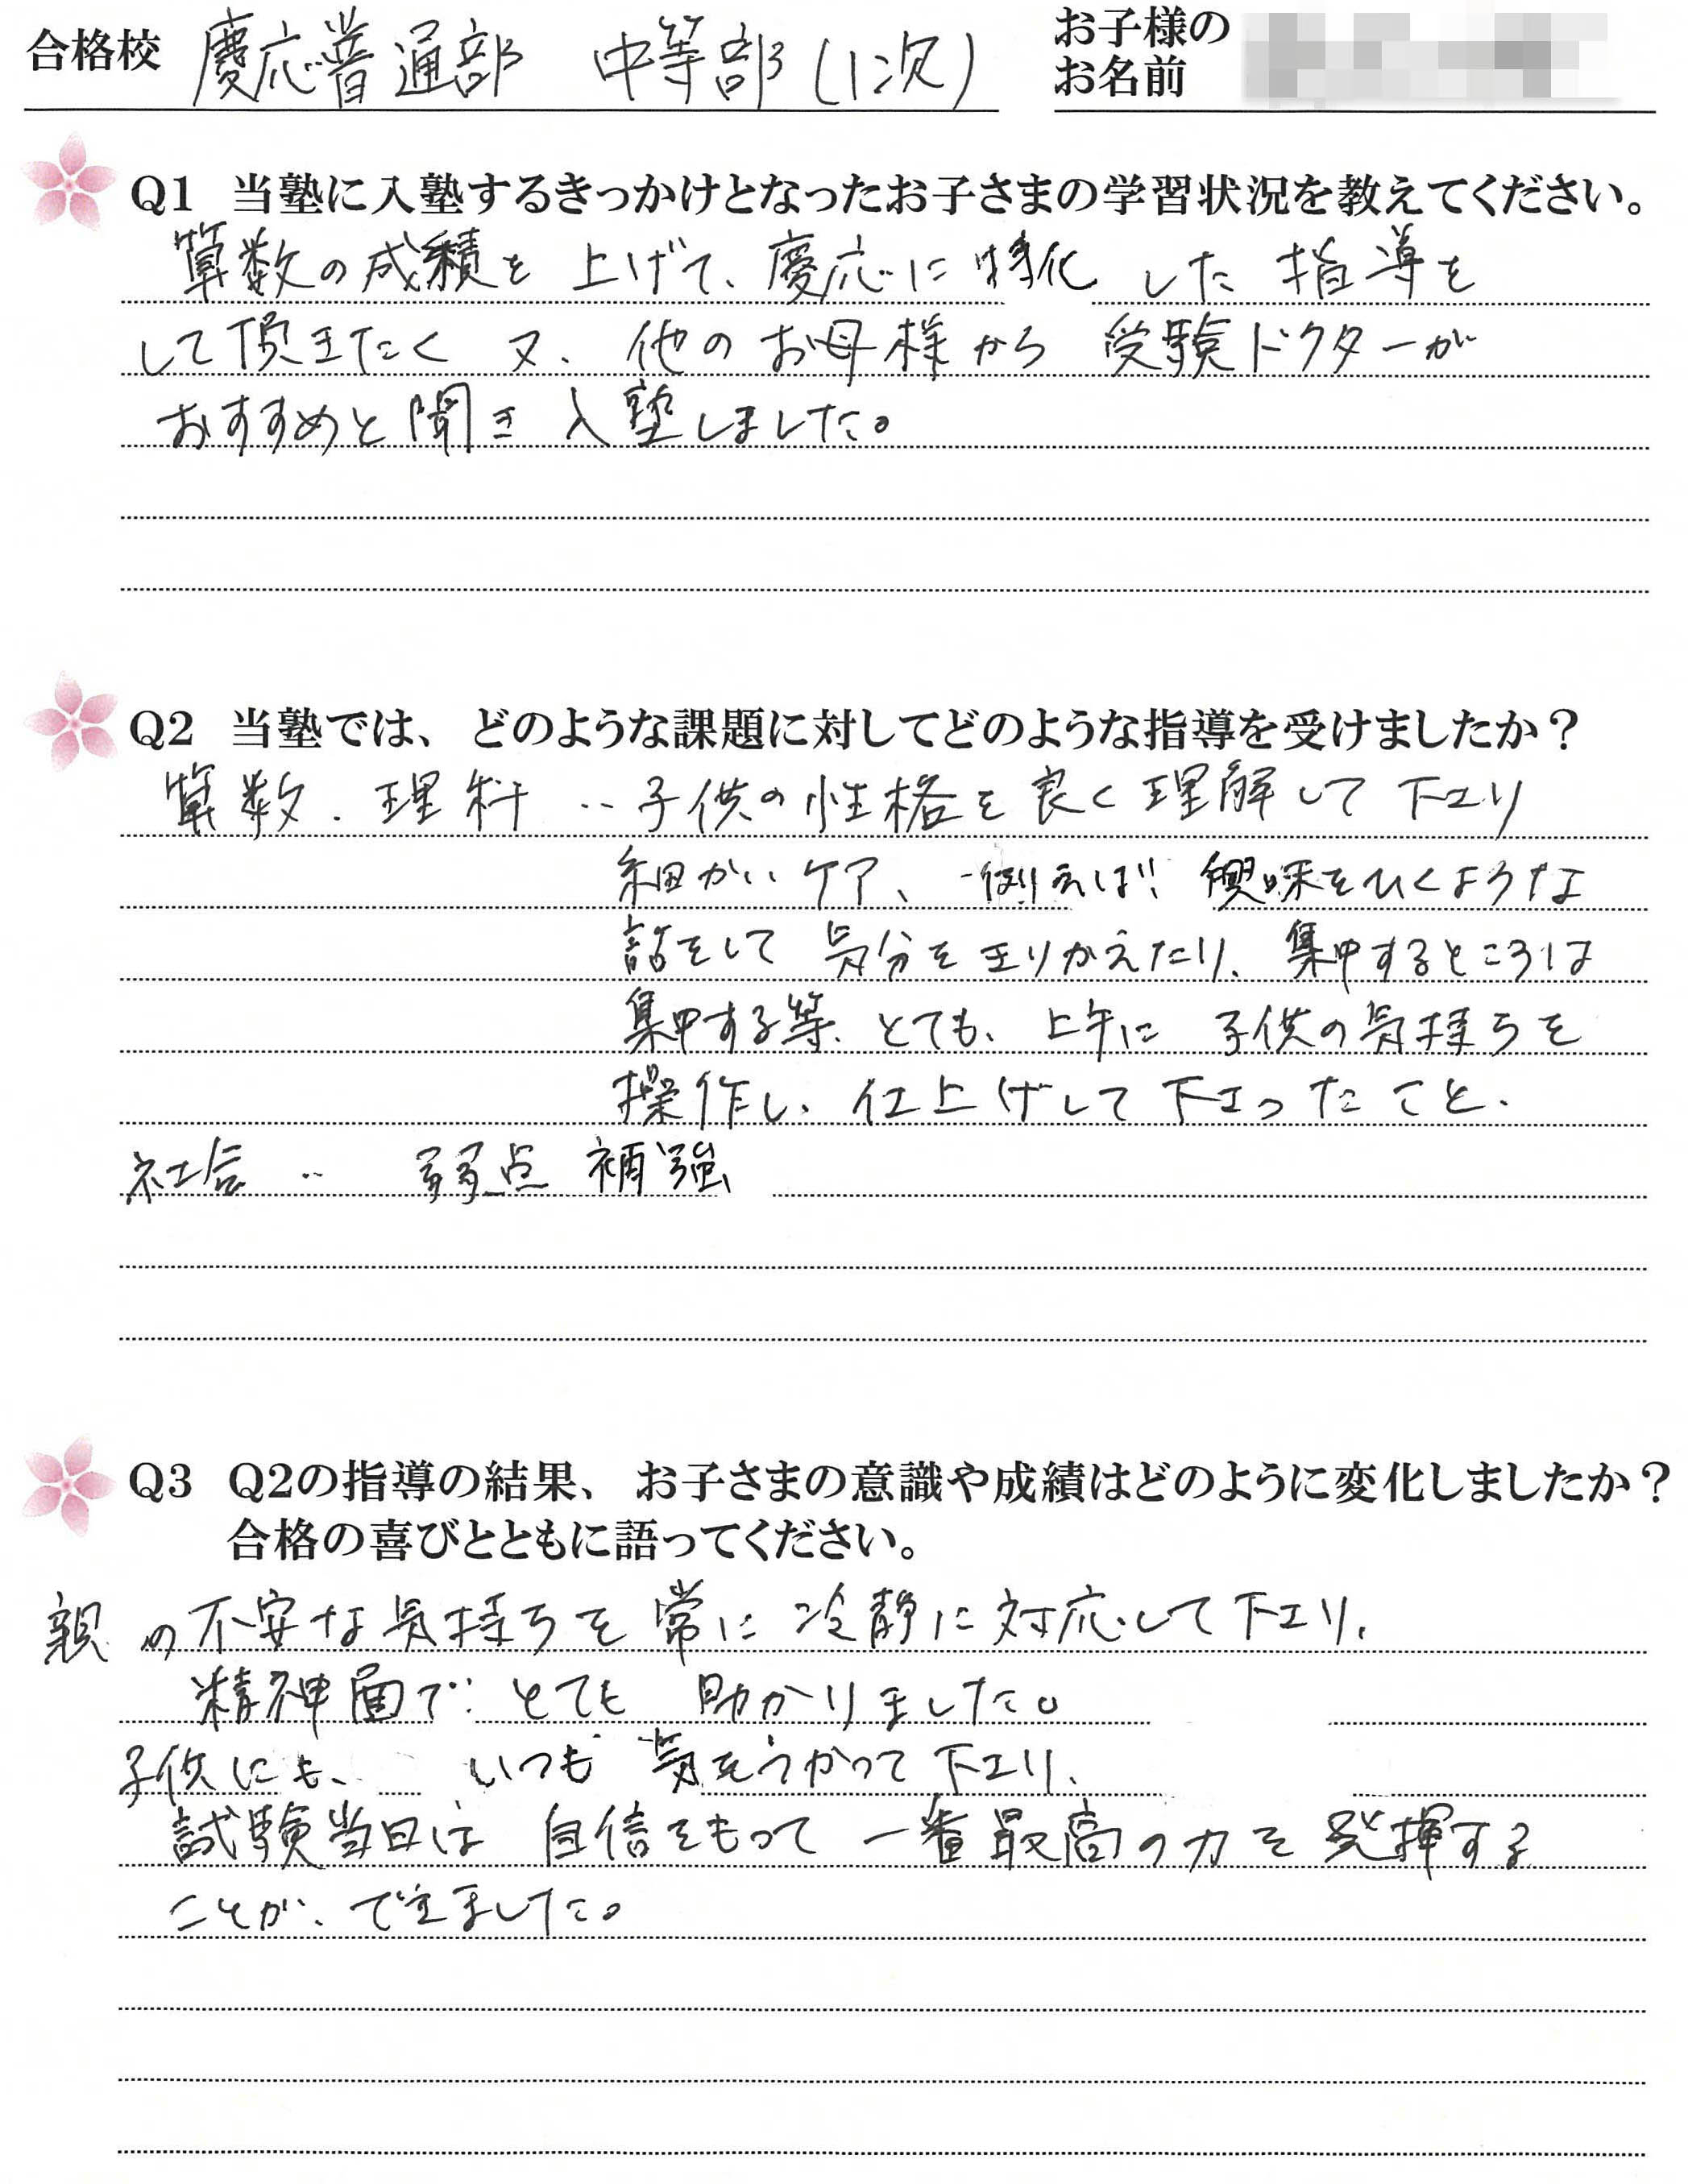 合格校 慶応普通部 中等部(1次)
お子様の
お名前
Q1 当塾に入塾するきっかけとなったお子さまの学習状況を教えてください。
算数の成績を上げて、慶応に特化した指導を
して頂きたく又、他のお母様から受験ドクターが
おすすめと聞き入塾しました。
Q2 当塾では、どのような課題に対してどのような指導を受けましたか？
算数、理科 ‥子供の性格を良く理解して下さり
細かいケア、例えば、興味をひくような
話をして気分を切りかえたり、集中するところは
集中する等、とても、上手に子供の気持ちを
操作し、仕上げして下さったこと、
社会 ‥ 弱点補強
Q3 Q2の指導の結果、お子さまの意識や成績はどのように変化しましたか？
合格の喜びとともに語ってください。
親の不安な気持ちを常に冷静に対応して下さり、
精神面でとても助かりました。
子供にも、いつも気をつかって下さり、
試験当日は自信をもって一番最高の力を発揮する
ことが、できました。